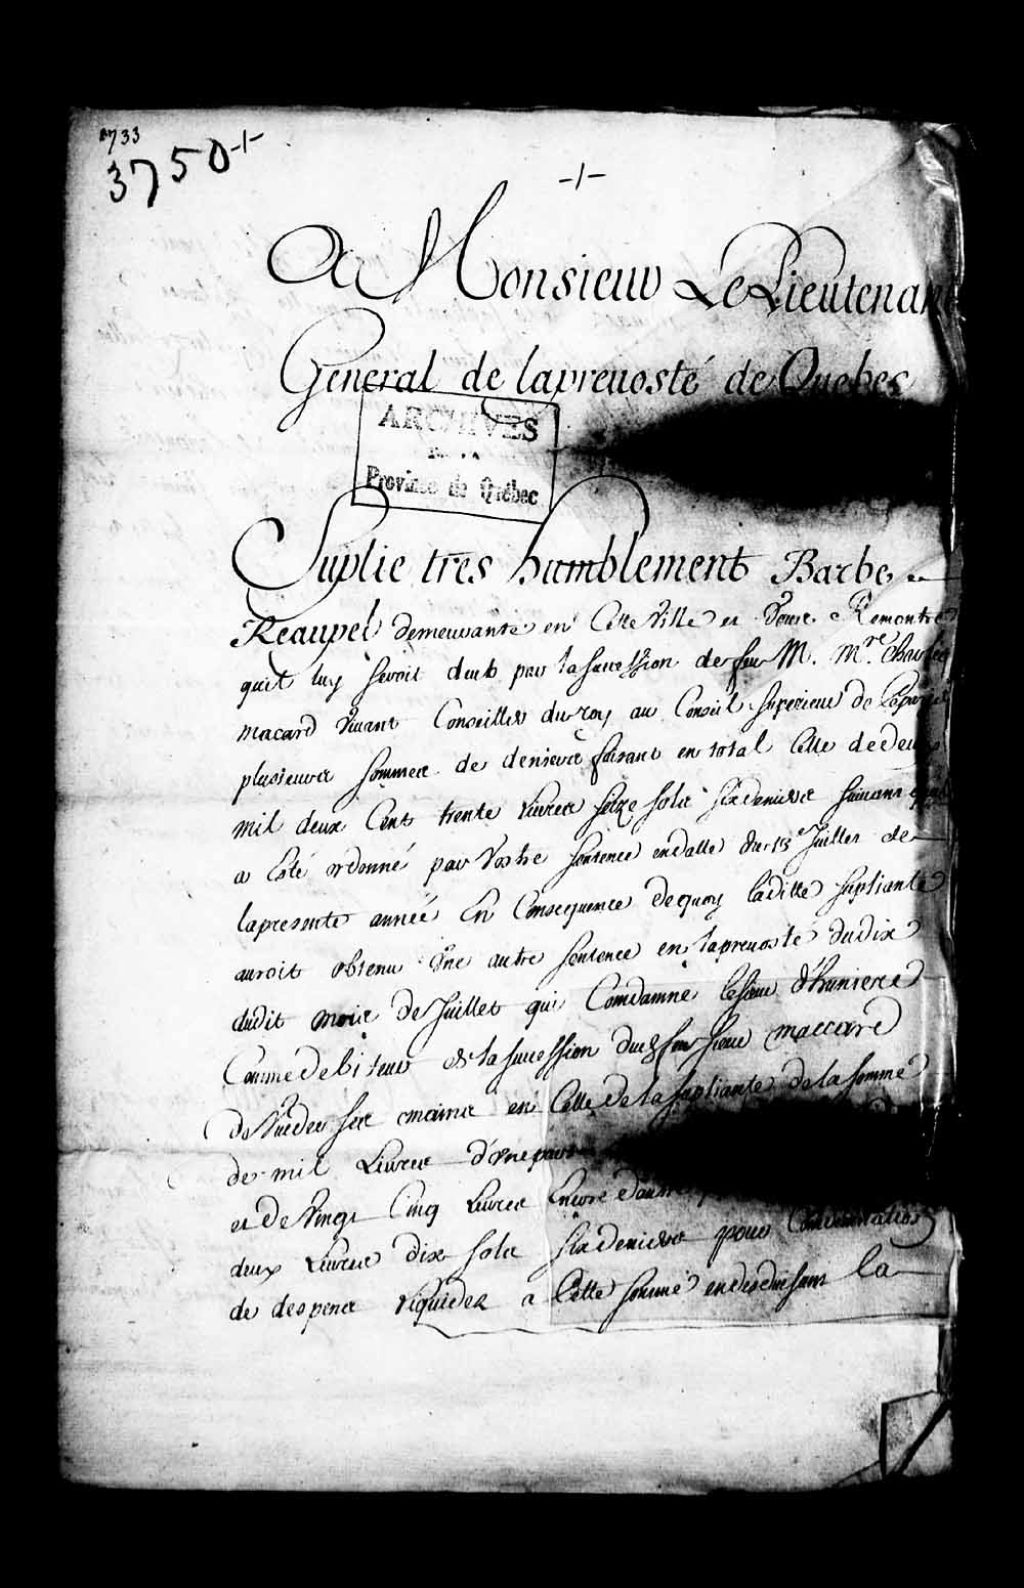 1733
3750-/-
-/-
A Monsieur Le Lieutenant
General de la prevosté de Quebec
ARCHIVES
Province de Québec
Suplie tres humblement Barbe
Reaupel demeurante en Cette Ville et Vous Remontre
quil luy seroit deub par la succession de feu M. Mre. Charles
macard vivant Conseiller du roy au Conseil superieur de
plusieurs sommes de deniers faisant en total Celle de deux
mil deux Cent trente livres seize sols six deniers suivant
a Esté ordonné par Vostre sentence en datte du 13e Juillet de
la presente année En Consequence de quoy laditte supliante
auroit obtenu Une autre sentence en la prevosté du dix
dudit mois de Juillet qui Comdamne le sieur d'hunieres
Comme debiteur de la succession dud feu sieur maccard
de Vuider ses mains en Celle de la supliante de la somme
de mil Livres d'Une part
et de Vingt Cinq Livres Encore d'autre
deux Livres dix sols six deniers pour
de despens liquidez a Cette somme en deduisant la